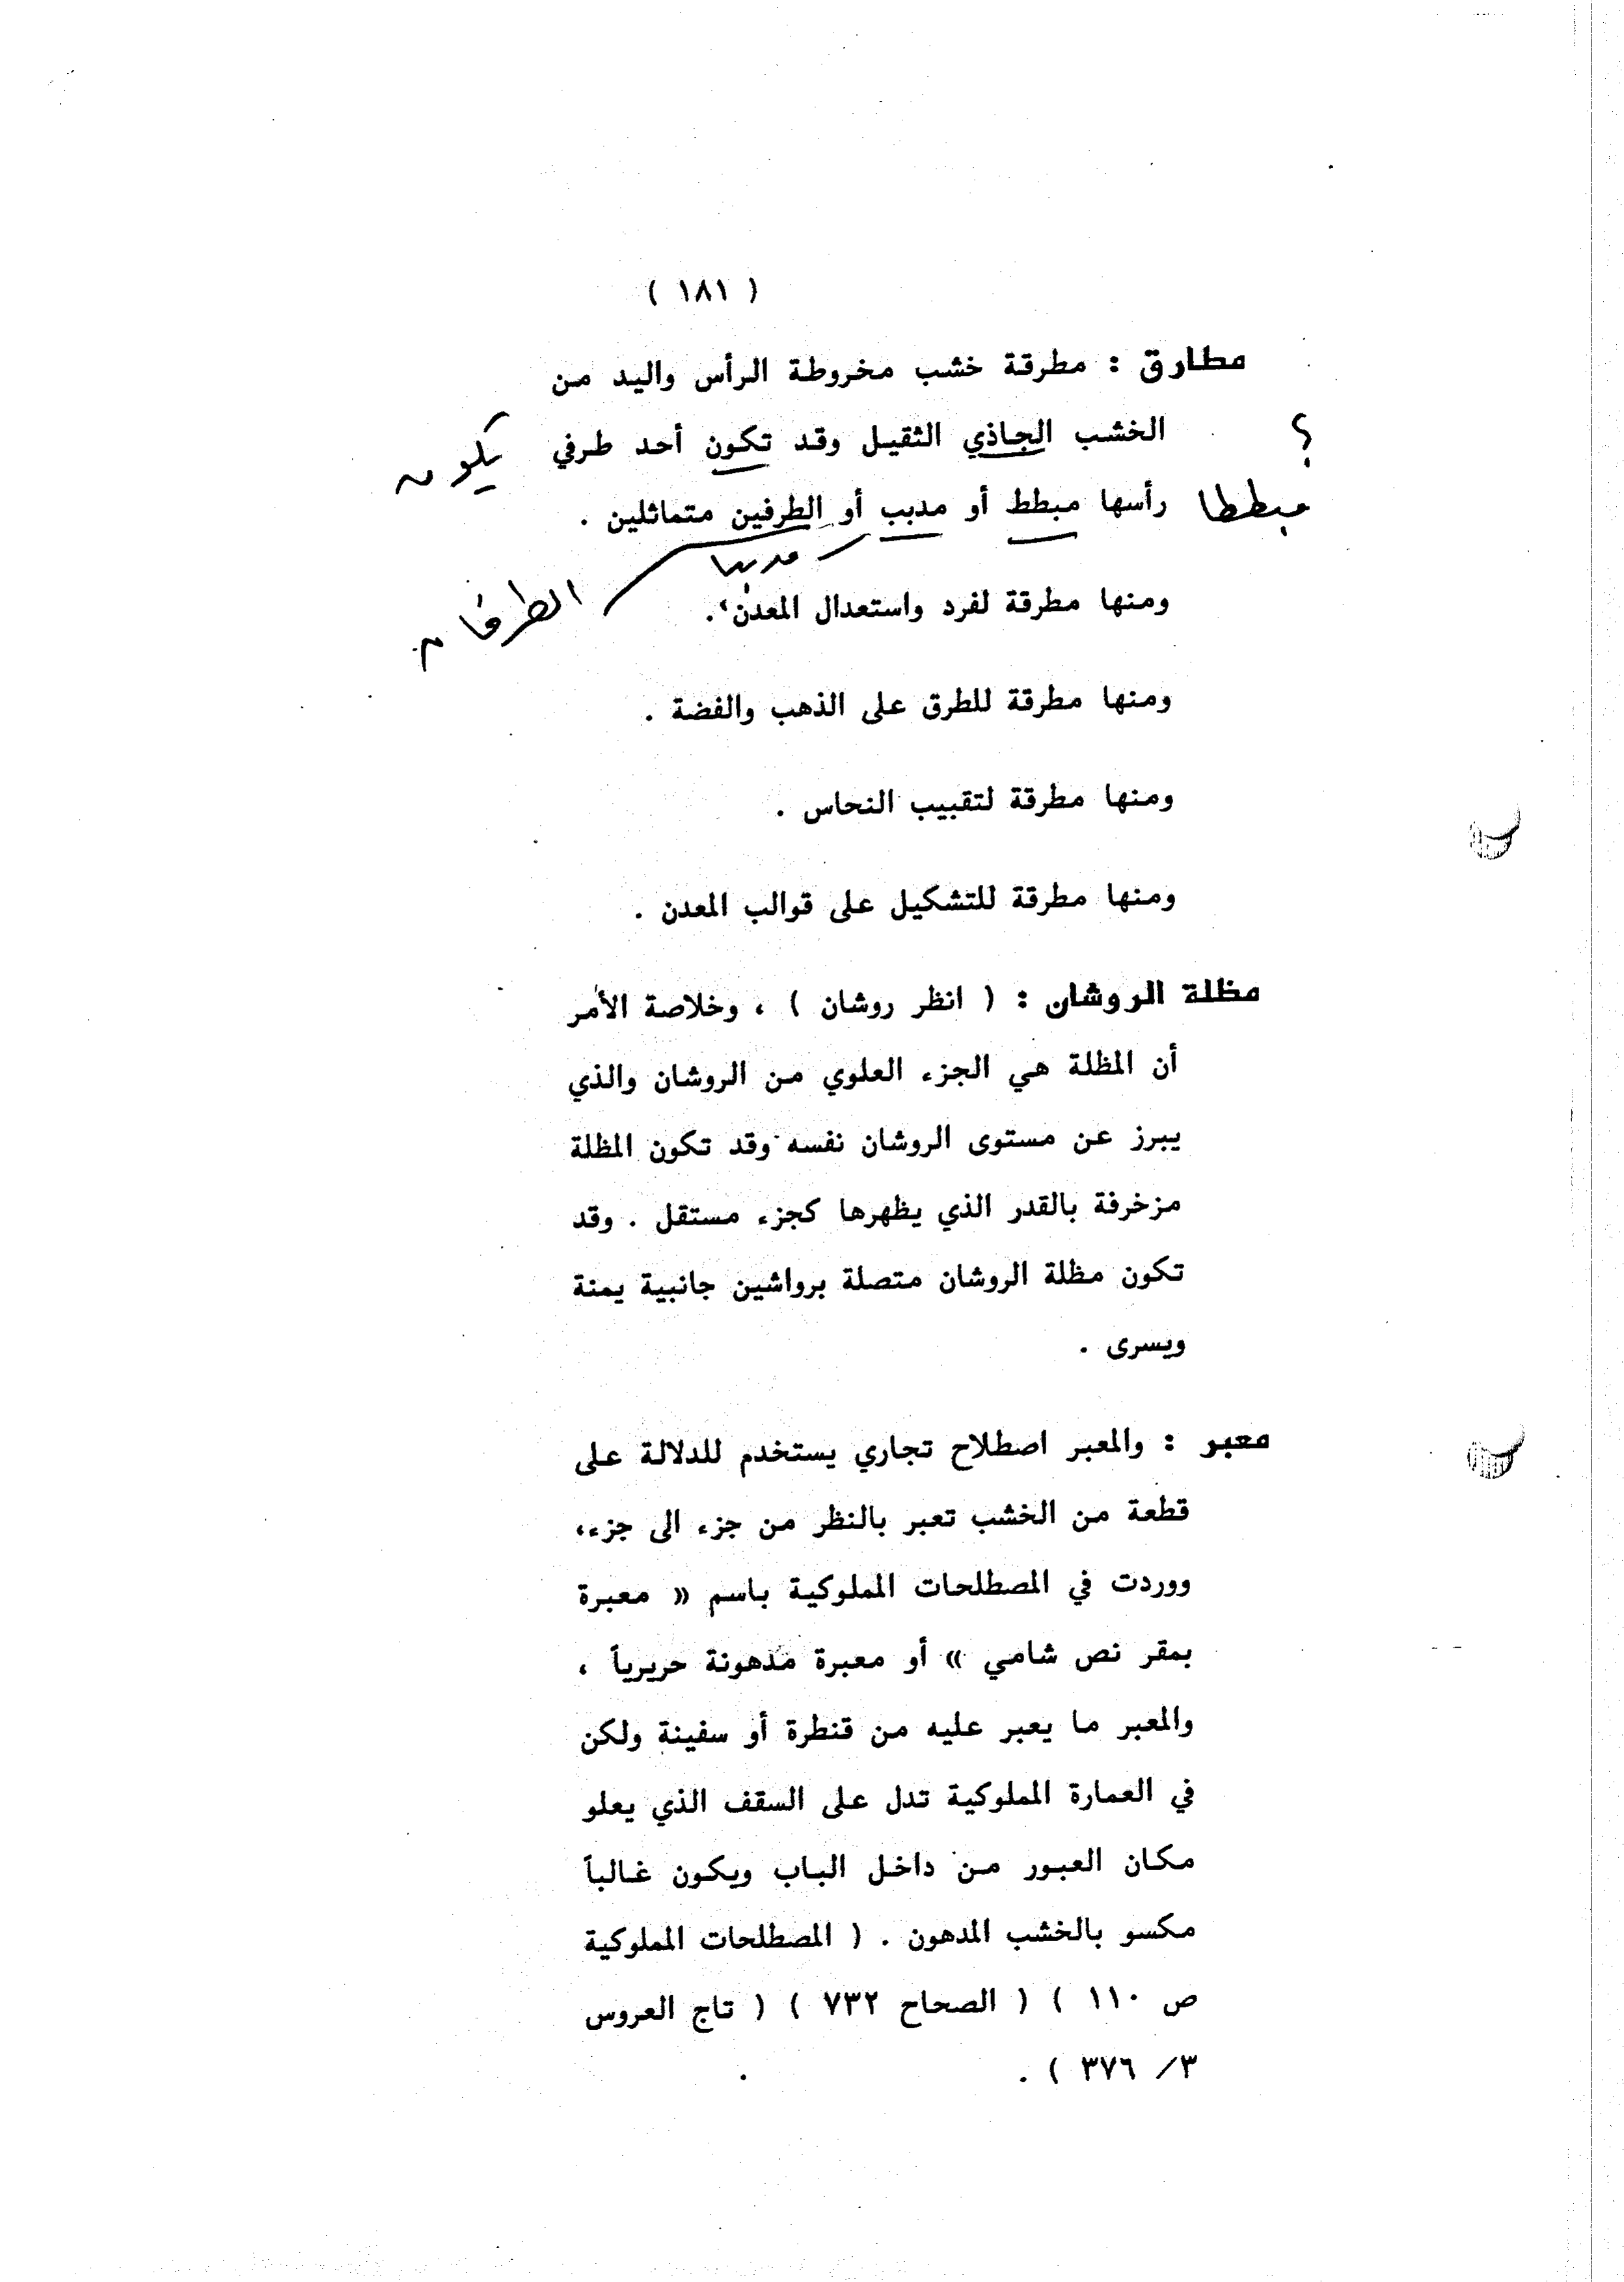 ( ١٨١ )
مطارق : مطرقة خشب مخروطة الرأس واليد من
الخشب الجاذي الثقيل وقد تكون أحد طرفي
؟
يكون
رأسها مبطط أو مدبب أو الطرفين متماثلين .
مبططا
مدببا
الطرفان
ومنها مطرقة لفرد واستعدال المعدن .
ومنها مطرقة للطرق على الذهب والفضة .
ومنها مطرقة لتقبيب النحاس .
ومنها مطرقة للتشكيل على قوالب المعدن .
مظلة الروشان : ( انظر روشان ) ، وخلاصة الأمر
أن المظلة هي الجزء العلوي من الروشان والذي
يبرز عن مستوى الروشان نفسه وقد تكون المظلة
مزخرفة بالقدر الذي يظهرها كجزء مستقل . وقد
تكون مظلة الروشان متصلة برواشين جانبية يمنة
ويسرى .
معبر : والمعبر اصطلاح تجاري يستخدم للدلالة على
قطعة من الخشب تعبر بالنظر من جزء الى جزء،
ووردت في المصطلحات المملوكية باسم « معبرة
بمقر نص شامي » أو معبرة مدهونة حريرياً ،
والمعبر ما يعبر عليه من قنطرة أو سفينة ولكن
في العمارة المملوكية تدل على السقف الذي يعلو
مكان العبور من داخل الباب ويكون غالباً
مكسو بالخشب المدهون . ( المصطلحات المملوكية
ص ١١٠ ) ( الصحاح ٧٣٢ ) ( تاج العروس
٣/ ٣٧٦ ) .